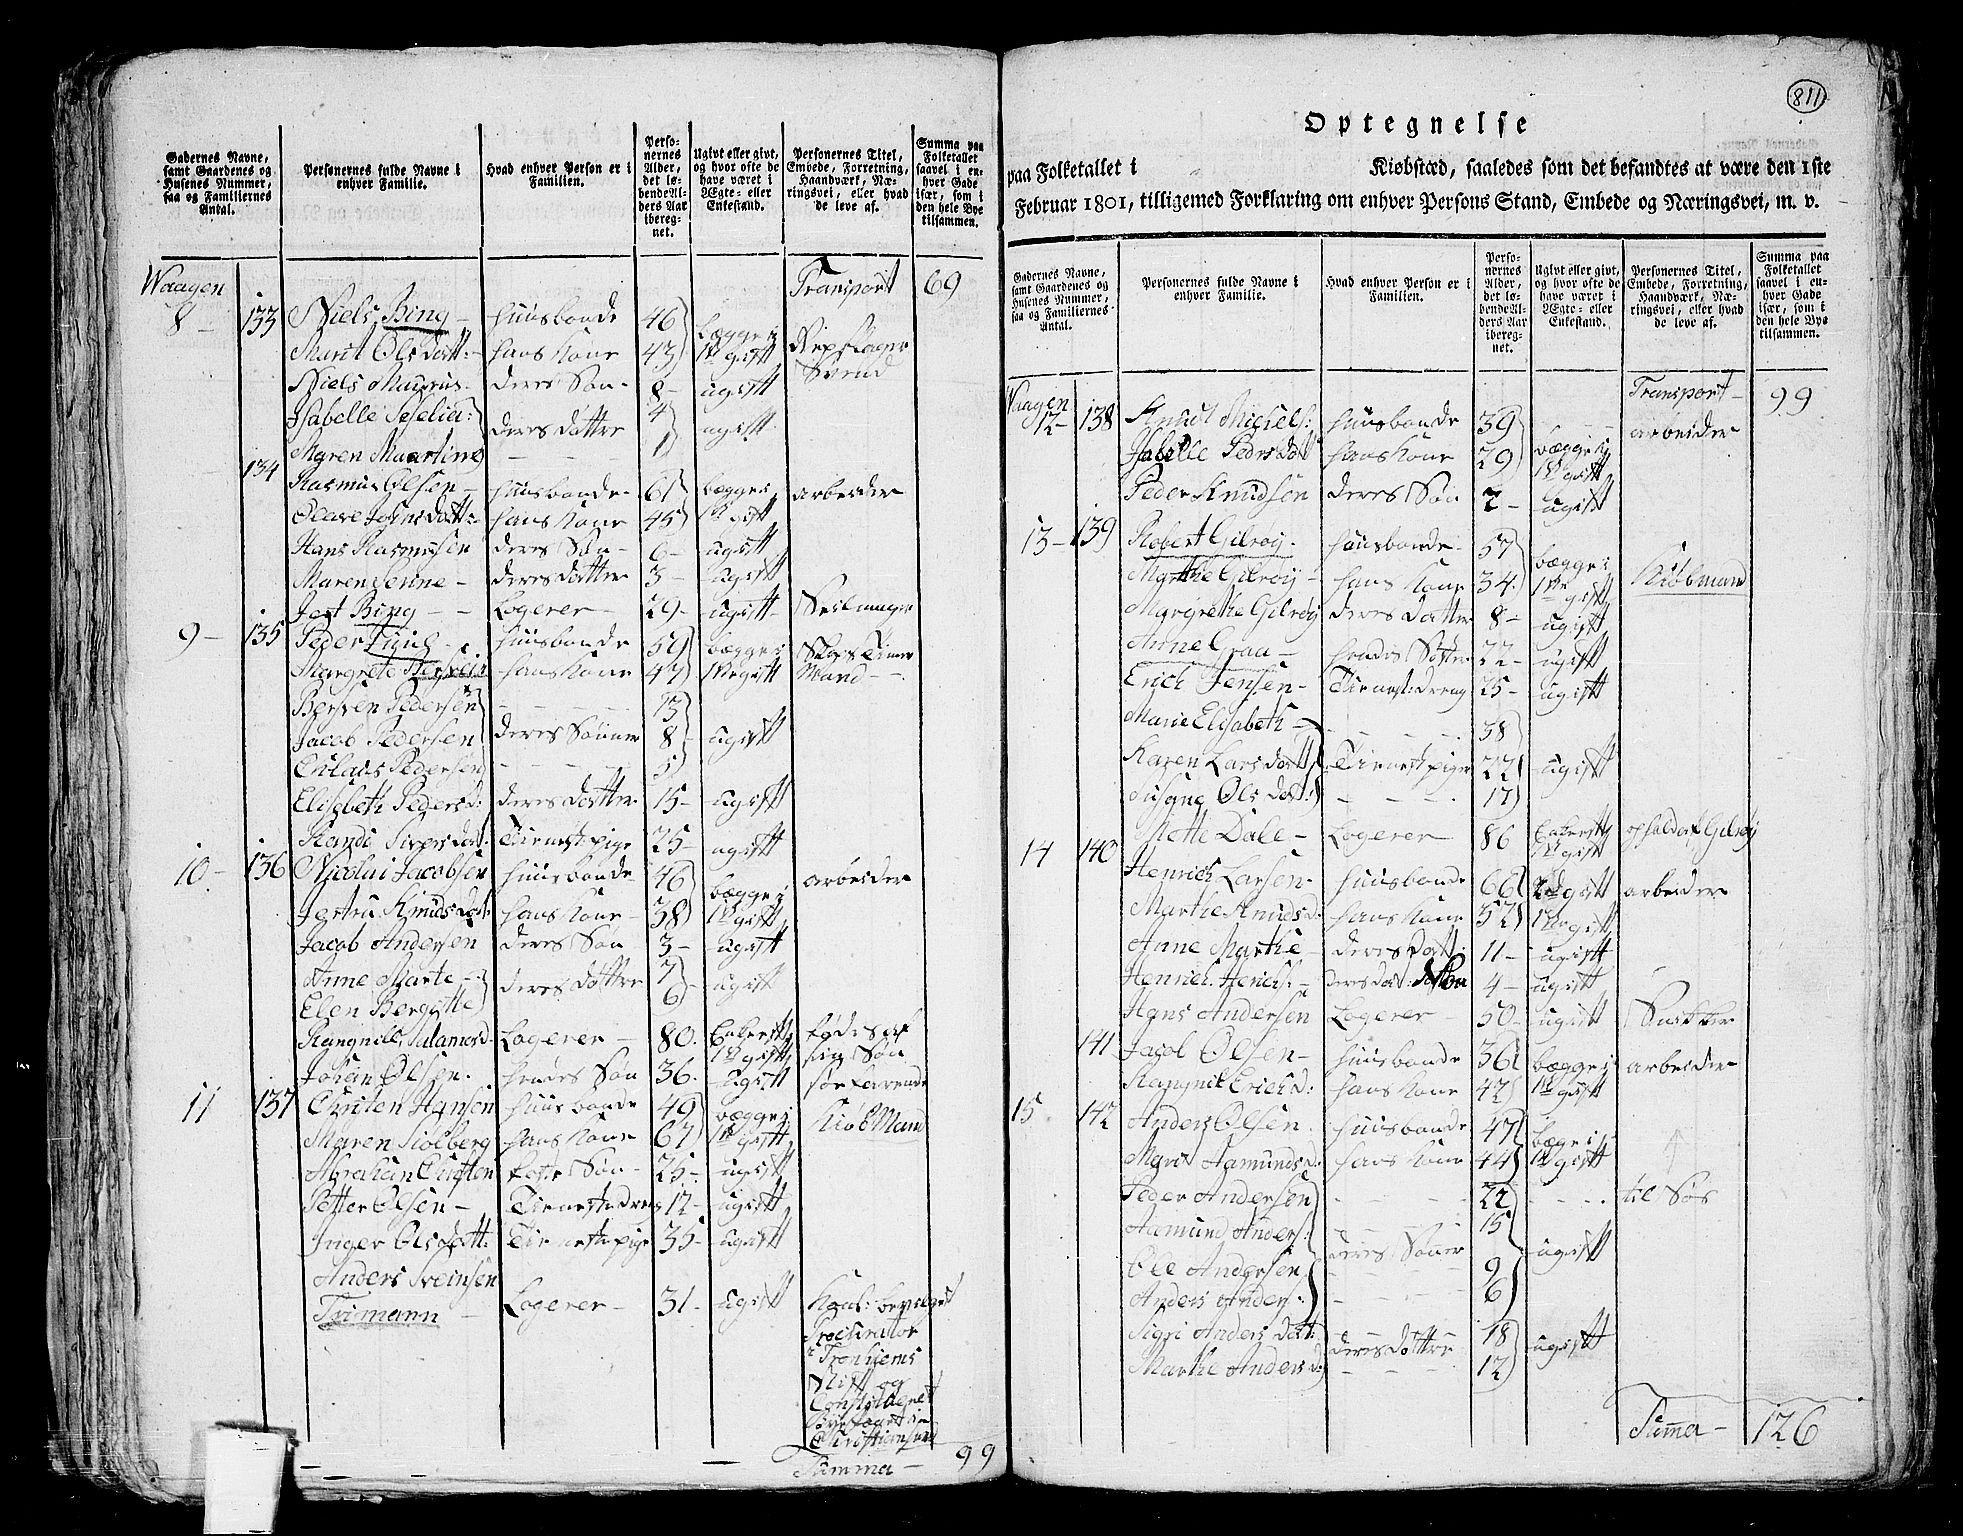 811
Gadernes Navne, samt Gaardenes og Husenes Nummer, saa og Familiernes Antal.
Personernes fulde Navne i enhver Familie.
Hvad enhver Person er i Familien.
Personernes Alder, det løbende Alders Aar iberegnet.
Ugivt eller givt, og hvor ofte de have været i Ægte- eller Enkestand.
Personernes Titel, Embede, Forretning, Haandværk, Næringsvei, eller hvad de leve af.
Summa paa Folketallet saavel i enhver Gade især, som i den hele Bye tilsammen.
Waagen Transport 69
8 - 133 Niels Bing - Huusbonde 46 begge i
Marit Olsdatt: - hans Kone 43 1te gift Repslager
Niels Maurus - deres Søn - 8 - ugift Svend
Isabelle Seselia: deres døttre 4 ugift
Maren Maartine - - - 1
134 Rasmus Olsen - Huusbonde - 61 begge i arbeider
Johnsdatt: hans Kone 45 1te gift
Hans Rasmusen deres Søn - 6 - ugift
Maren - deres datter 3 - ugift
Jest Bing - - Logerer - 29 - ugift - Seilmager
9 - 135 Peder Huusbonde 59 begge i
Margrete hans Kone 47 1te gift Mand -
Pedersen - - - 13
Jacob Pedersen deres Sønner 8 - ugift
Pedersen - - - 5
Elisebeth Peders d: deres datter 15 - ugift
Randi datt Tienestpige 25 - ugift
10 - 136 Nicolai Jacobsen Huusbonde - 46 begge i arbeider
Jertru Knudsdat: hans Kone - 38 1te gift
Jacob Andersen deres Søn - 3 - ugift
Anne Marte - deres døttre 7 ugift
Elen Bergitte 6
Logerer - 80. Enkest: fødes af
1te gift sin Søn
Johan Olsen. hendes Søn 36. ugift søefarende
11 137 Christen Hansen Huusbonde 49 begge i Kiøbmand
Maren Siølberg hans Kone 67 1te gift
Abraham Christen Søn - 25 - ugift
Petter Olsen - Tienestedreng 12 - ugift
Inger Olsdatt: Tienestepige 35 - ugift
Anders Sveinsen
Trimann - Logerer - 31 - ugift
Procurator
i Tronhiems
Stift og
Constitueret
Byefoget i
Christiansund
Summa - 99
Optegnelse
paa Folketallet i Kiøbstæd, saaledes som det befandtes at være den 1ste
Februar 1801, tilligemed Forklaring om enhver Persons Stand, Embede og Næringsvei, m. v.
Gadernes Navne, samt Gaardenes og Husenes Nummer, saa og Familiernes Antal.
Personernes fulde Navne i enhver Familie.
Hvad enhver Person er i Familien.
Personernes Alder, det løbende Alders Aar iberegnet.
Ugivt eller givt, og hvor ofte de have været i Ægte- eller Enkestand.
Personernes Titel, Embede, Forretning, Haandværk, Næringsvei, eller hvad de leve af.
Summa paa Folketallet saavel i enhver Gade især, som i den hele Bye tilsammen.
Waagen Transport - 99
12 - 138 Knud Huusbonde 39 - - - arbeider
Isabelle Pedersdatt hans Kone 29 begge i 1te gift
Peder Knudsen deres Søn 2 - ugift
13 - 139 Robert Gilroy. Huusbonde - 57 begge i
Marthe Gilroy - hans Kone 34. 1te gift Kiøbmand
Margrethe Gilroy deres datter 8 - ugift
Anne Graa - hendes Søster 22 - ugift
Erich Jensen - Tienest: dreng 25 - ugift
Marie Elisabeth - - - - 38
Karen Larsdatt Tienestpiger 22 ugift
Olsdat: - - - 17
Mette Dale - Logerer - 86 Enkest: 1te gift opholdes af Gilroy
14 140 Henrich Larsen - Huusbonde 66 2d gift arbeider
Marthe Knuds d: hans Kone 52 1te gift
Anne Marthe deres datt: 11 - ugift
Henrich Henrichs: - deres Søn 4 - ugift
Hans Andersen Logerer - 50 - ugift
141 Jacob Olsen - Huusbonde 36 begge i arbeider
Erichs d: hans Kone 42 1te gift
15. 142 Anders Olsen. Huusbonde 47 begge i
Marit Aamunds d: hans Kone 44 1te gift
Peder Andersen - - - 22 - - - til Søs
Aamund Anders: - - - 15
deres Sønner ugift
Ole Andersen - - - 9
Anders Anders: - - - 6
Sigri Andersdat: deres døttre 18 ugift
Marthe Anders d: - - 12
Summa - 126